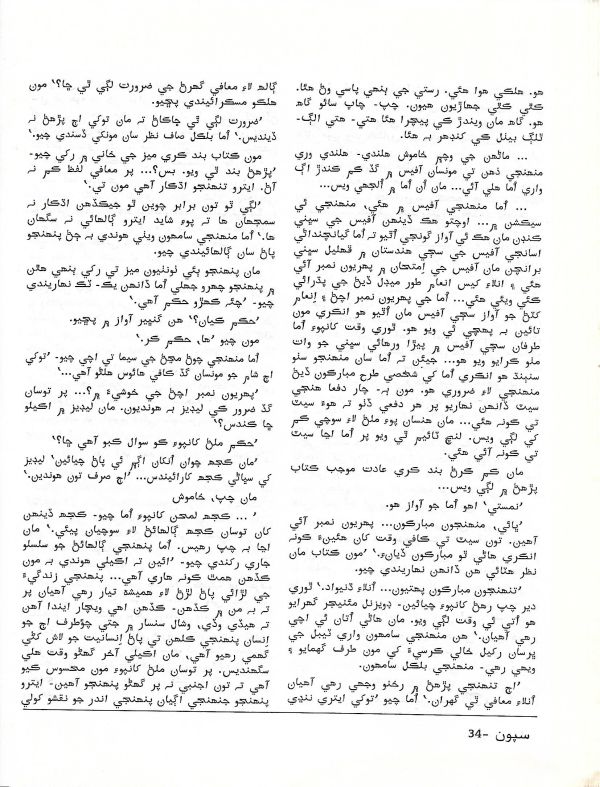 هو. هلڪي هوا هئي. رستي جي ٻنهي پاسي وڻ هئا.
ڪٿي ڪٿي جهاڙيون هيون. چپ- چاپ سائو گاهه
هو. گاهه مان ويندڙ ڪي پيچرا هئا هتي- هتي الڳ-
ٿلڳ بيٺل ڪي کنڊهر به هئا.
... ماڻهن جي وچ۾ خاموش هلندي- هلندي وري
منهنجي ذهن تي مونسان آفيس ۾ گڏ ڪم ڪندڙ اڳ
واري اُما هلي آئي... مان اُن اُما ۾ الجهي ويس...
... اُما منهنجي آفيس ۾ هئي، منهنجي ئي
سيڪشن ۾... اوچتو هڪ ڏينهن آفيس جي سڀني
ڪنڊن مان هڪ ئي آواز گونجي اُٿيو ته اُما گيانچنداڻي
اسانجي آفيس جي سڄي هندستان ۾ ڦهليل سڀني
برانچن مان آفيس جي اِمتحان ۾ پهريون نمبر آئي
هئي ۽ انلاءِ کيس انعام طور ميڊل ڏيڻ جي پڌرائي
ڪئي ويئي هئي... اُما جي پهريون نمبر اچڻ ۽ اِنعام
کٽڻ جو آواز سڄي آفيس مان اُٿيو هو انڪري مون
تائين به پهچي ئي ويو هو. ٿوري وقت کانپوءِ اُما
طرفان سڄي آفيس ۾ پيڙا ورهائي سڀني جو وات
مٺو ڪرايو ويو هو... جيئن ته اُما سان منهنجو سٺو
سنٻنڌ هو انڪري اُما کي شخصي طرح مبارڪون ڏيڻ
منهنجي لاءِ ضروري هو. مون ٻه- چار دفعا هنجي
سيٽ ڏانهن نهاريو پر هر دفعي ڏٺو ته هوءَ سيٽ
تي ڪونه هئي... مان هنسان پوءِ ملڻ لاءِ سوچي ڪم
کي لڳي ويس. لنچ ٽائيم ٿي ويو پر اُما اڃا سيٽ
تي ڪونه آئي هئي.
مان ڪم ڪرڻ بند ڪري عادت موجب ڪتاب
پڙهڻ ۾ لڳي ويس...
'نمستي' اهو اُما جو آواز هو.
'ڀائي، منهنجون مبارڪون... پهريون نمبر آئي
آهين. تون سيٽ تي ڪافي وقت کان هئينءَ ڪونه
انڪري هاڻي ٿو مبارڪون ڏيانءِ.' مون ڪتاب مان
نظر هٽائي هن ڏانهن نهاريندي چيو.
'تنهنجون مبارڪون پهتيون... اُنلاءِ ڌنيواد.' ٿوري
دير چپ رهڻ کانپوءِ چيائين- ڊويزنل مئنيجر گهرايو
هو اُتي ئي وقت لڳي ويو. مان هاڻي اُتان ئي اچي
رهي آهيان.' هن منهنجي سامهون واري ٽيبل جي
ڀرسان رکيل خالي ڪرسيءَ کي مون طرف گهمايو ۽
ويهي رهي- منهنجي بلڪل سامهون.
'اڄ تنهنجي پڙهڻ ۾ رخنو وجهي رهي آهيان
اُنلاءِ معافي ٿي گهران.' اُما چيو 'توکي ايتري ننڍي
ڳالهه لاءِ معافي گهرڻ جي ضرورت لڳي ٿي ڇا؟' مون
هلڪو مسڪرائيندي پڇيو.
'ضرورت لڳي ٿي ڇاڪاڻ ته مان توکي اڄ پڙهڻ نه
ڏينديس.' اُما بلڪل صاف نظر سان مونکي ڏسندي چيو.
مون ڪتاب بند ڪري ميز جي خاني ۾ رکي چيو-
'پڙهڻ بند ٿي ويو. بس؟... پر معافي لفظ ڪم نه
آڻ. ايترو تنهنجو اڌڪار آهي مون تي.'
'لڳي ٿو تون برابر چوين ٿو جيڪڏهن اڌڪار نه
سمجهان ها ته پوءِ شايد ايترو ڳالهائي نه سگهان
ها.' اُما منهنجي سامهون ويٺي هوندي به ڄڻ پنهنجو
پاڻ سان ڳالهائيندي چيو.
مان پنهنجو ٻئي ٺونٺيون ميز تي رکي ٻنهي هٿن
۾ پنهنجو چهرو جهلي اُما ڏانهن يڪ- ٽڪ نهاريندي
چيو- 'چئه ڪهڙو حڪم آهي.'
'حڪم ڪيان؟' هن گنڀير آواز ۾ پڇيو.
مون چيو 'ها، حڪم ڪر.'
اُما منهنجي چوڻ مڃڻ جي سيما تي اچي چيو- 'توکي
اڄ شام جو مونسان گڏ ڪافي هائوس هلڻو آهي...'
'پهريون نمبر اچڻ جي خوشيءَ ۾؟... پر توسان
گڏ ضرور ڪي ليڊيز به هونديون. مان ليڊيز ۾ اڪيلو
ڇا ڪندس؟'
'حڪم ملڻ کانپوءِ ڪو سوال ڪبو آهي ڇا؟'
'مان ڪجهه چوان اُنکان اڳي ئي پاڻ چيائين' ليڊيز
کي سياڻي کارائيندس... 'اڄ صرف تون هوندين.'
مان چپ، خاموش
' ... ڪجهه لمحن کانپوءِ اُما چيو- ڪجهه ڏينهن
کان توسان ڪجهه ڳالهائڻ لاءِ سوچيان پيئي.' مان
اڃا به چپ رهيس. اُما پنهنجي ڳالهائڻ جو سلسلو
جاري رکندي چيو- 'ائين ته اڪيلي هوندي به مون
ڪڏهن همٿ ڪونه هاري آهي... پنهنجي زندگيءَ
جي لڙائي پاڻ لڙڻ لاءِ هميشه تيار رهي آهيان پر
ته به من ۾ ڪڏهن- ڪڏهن اهي ويچار ايندا آهن
ته هيڏي وڏي، وشال سنسار ۾ جتي چؤطرف اڄ جو
اِنسان پنهنجي ڪلهن تي پاڻ اِنسانيت جو لاش کڻي
گهمي رهيو آهي، مان اڪيلي آخر گهڻو وقت هلي
سگهنديس. پر توسان ملڻ کانپوءِ مون محسوس ڪيو
آهي ته تون اجنبي نه پر گهڻو پنهنجو آهين- ايترو
پنهنجو جنهنجي اڳيان پنهنجي اندر جو نقشو کولي
سپون -34